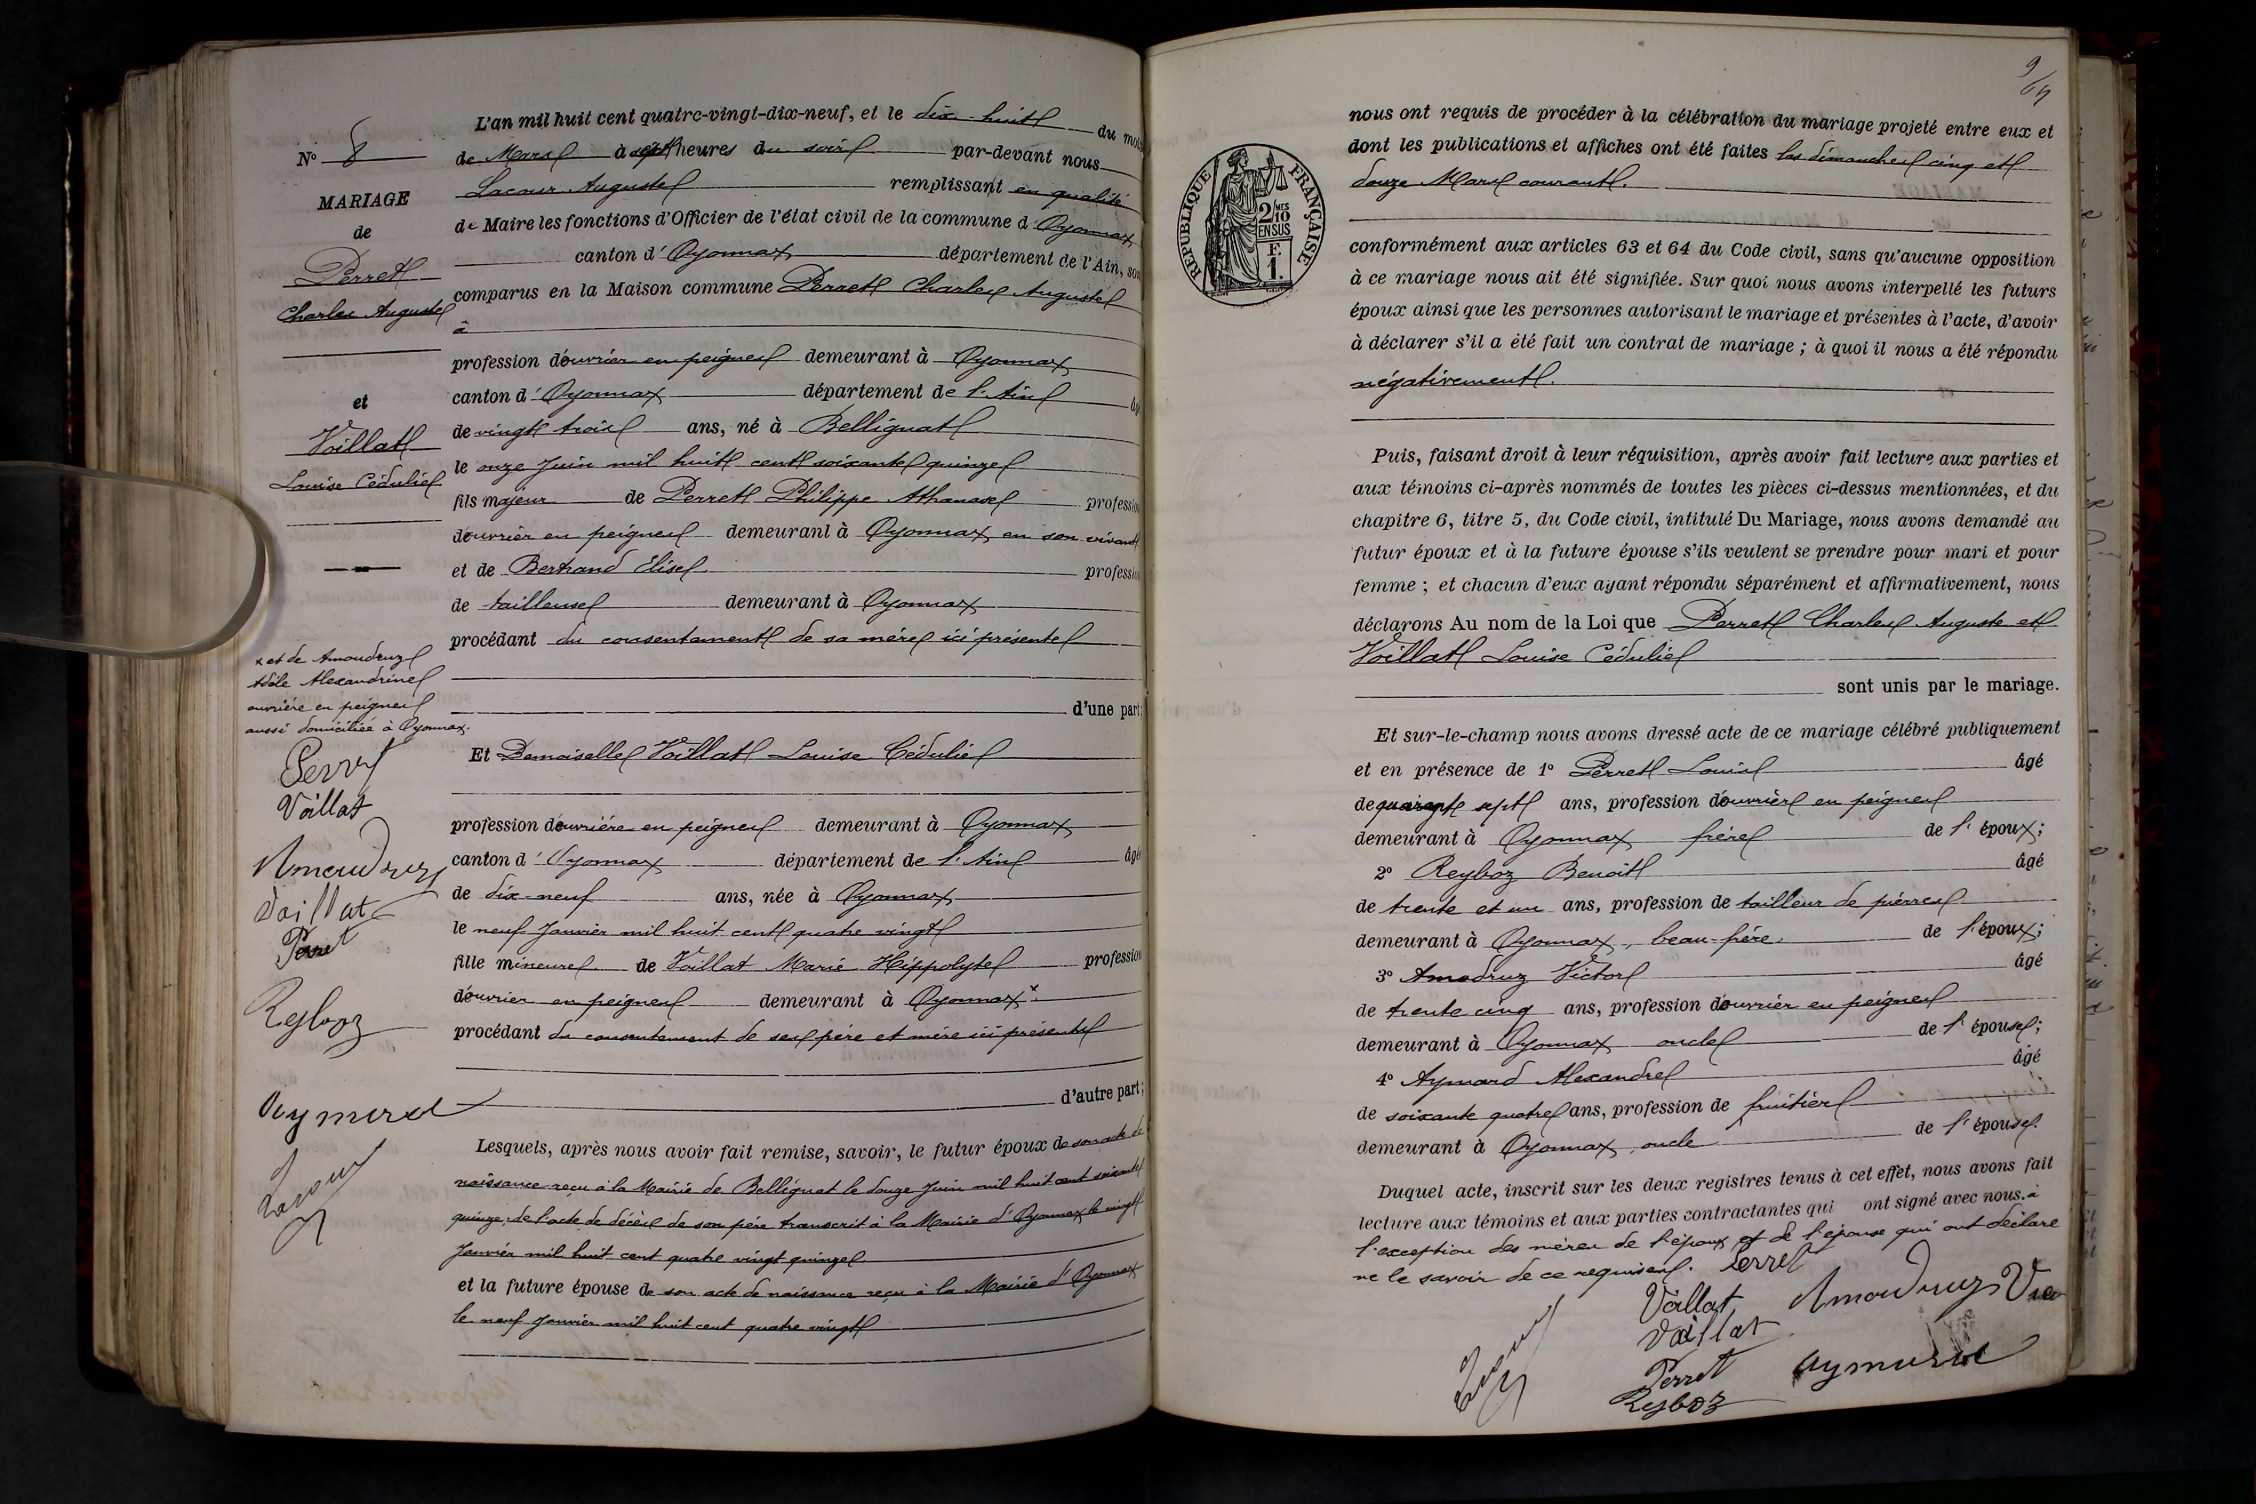 L'an mil huit cent quatre-vingt-dix-neuf, et le dix-huit du mois
N° 8
de Mars à sept heures du soir par-devant nous
Lacour Auguste remplissant en qualité
MARIAGE
de Maire les fonctions d'Officier de l'état civil de la commune d'Oyonnax
de
canton d'Oyonnax département de l'Ain, son
Perret
comparus en la Maison commune Perret Charles Auguste
Charles Auguste
à
profession d'ouvrier en peignes demeurant à Oyonnax
canton d'Oyonnax département de l'Ain âgé
et
de vingt trois ans, né à Bellignat
Voillat
le onze Juin mil huit cent soixante quinze
Louise Cédulie
fils majeur de Perret Philippe Athanase profession
d'ouvrier en peignes demeurant à Oyonnax en son vivant
et de Bertrand Elise profession
de tailleuse demeurant à Oyonnax
procédant du consentement de sa mère ici présente
x et de Amoudruz
Adèle Alexandrine
ouvrière en peignes
aussi domiciliée à Oyonnax.
d'une part;
Et Demoiselle Voillat Louise Cédulie
Perret
Voillat
profession d'ouvrière en peignes demeurant à Oyonnax
canton d'Oyonnax département de l'Ain âgée
Amoudruz
de dix-neuf ans, née à Oyonnax
Voillat
le neuf Janvier mil huit cent quatre vingt
Perret
fille mineure de Voillat Marie Hippolyte profession
d'ouvrier en peignes demeurant à Oyonnax x
Reyboz
procédant du consentement de ses père et mère ici présents
d'autre part;
Aymard
Lesquels, après nous avoir fait remise, savoir, le futur époux de son acte de
Lacour
naissance reçu à la Mairie de Bellignat le douze Juin mil huit cent soixante
quinze, de l'acte de décès de son père transcrit à la Mairie d'Oyonnax le vingt
Janvier mil huit cent quatre vingt quinze
et la future épouse de son acte de naissance reçu à la Mairie d'Oyonnax
le neuf Janvier mil huit cent quatre vingt
9
RÉPUBLIQUE FRANÇAISE
2/10MES
EN SUS
F.
1.
nous ont requis de procéder à la célébration du mariage projeté entre eux et
dont les publications et affiches ont été faites les dimanches cinq et
douze Mars courant.
conformément aux articles 63 et 64 du Code civil, sans qu'aucune opposition
à ce mariage nous ait été signifiée. Sur quoi nous avons interpellé les futurs
époux ainsi que les personnes autorisant le mariage et présentes à l'acte, d'avoir
à déclarer s'il a été fait un contrat de mariage ; à quoi il nous a été répondu
négativement.
Puis, faisant droit à leur réquisition, après avoir fait lecture aux parties et
aux témoins ci-après nommés de toutes les pièces ci-dessus mentionnées, et du
chapitre 6, titre 5, du Code civil, intitulé Du Mariage, nous avons demandé au
futur époux et à la future épouse s'ils veulent se prendre pour mari et pour
femme ; et chacun d'eux ayant répondu séparément et affirmativement, nous
déclarons Au nom de la Loi que Perret Charles Auguste et
Voillat Louise Cédulie
sont unis par le mariage.
Et sur-le-champ nous avons dressé acte de ce mariage célébré publiquement
et en présence de 1° Perret Louis âgé
de quarante sept ans, profession d'ouvrier en peignes
demeurant à Oyonnax frère de l'époux;
2° Reyboz Benoit âgé
de trente et un ans, profession de tailleur de pierres
demeurant à Oyonnax, beau-frère de l'époux;
3° Amodruz Victor âgé
de trente cinq ans, profession d'ouvrier en peignes
demeurant à Oyonnax oncle de l'épouse;
4° Aymard Alexandre âgé
de soixante quatre ans, profession de fruitier
demeurant à Oyonnax, oncle de l'épouse.
Duquel acte, inscrit sur les deux registres tenus à cet effet, nous avons fait
lecture aux témoins et aux parties contractantes qui ont signé avec nous. à
l'exception des mères de l'époux et de l'épouse qui ont déclaré
ne le savoir de ce requises. Perret
Voillat Amoudruz Vic
Voillat
Lacour Perret Aymard
Reyboz